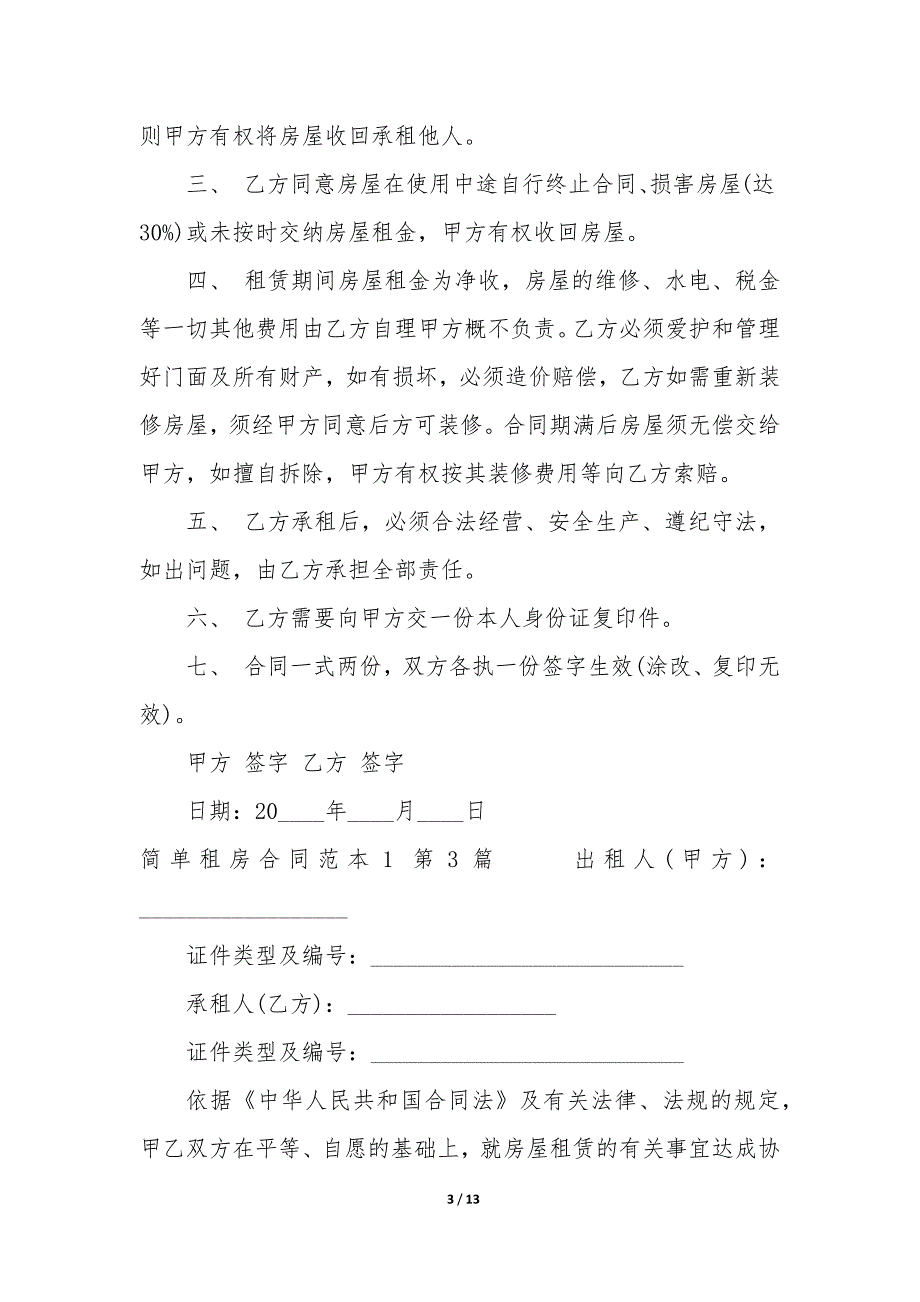 则甲方有权将房屋收回承租他人。
三、 乙方同意房屋在使用中途自行终止合同、损害房屋(达
30%)或未按时交纳房屋租金，甲方有权收回房屋。
四、 租赁期间房屋租金为净收，房屋的维修、水电、税金
等一切其他费用由乙方自理甲方概不负责。乙方必须爱护和管理
好门面及所有财产，如有损坏，必须造价赔偿，乙方如需重新装
修房屋，须经甲方同意后方可装修。合同期满后房屋须无偿交给
甲方，如擅自拆除，甲方有权按其装修费用等向乙方索赔。
五、 乙方承租后，必须合法经营、安全生产、遵纪守法，
如出问题，由乙方承担全部责任。
六、 乙方需要向甲方交一份本人身份证复印件。
七、 合同一式两份，双方各执一份签字生效(涂改、复印无
效)。
甲方 签字 乙方 签字
日期：20____年____月____日
简单租房合同范本1 第3篇 出租人(甲方)：
__________________
证件类型及编号：___________________________
承租人(乙方)：__________________
证件类型及编号：___________________________
依据《中华人民共和国合同法》及有关法律、法规的规定，
甲乙双方在平等、自愿的基础上，就房屋租赁的有关事宜达成协
3 / 13